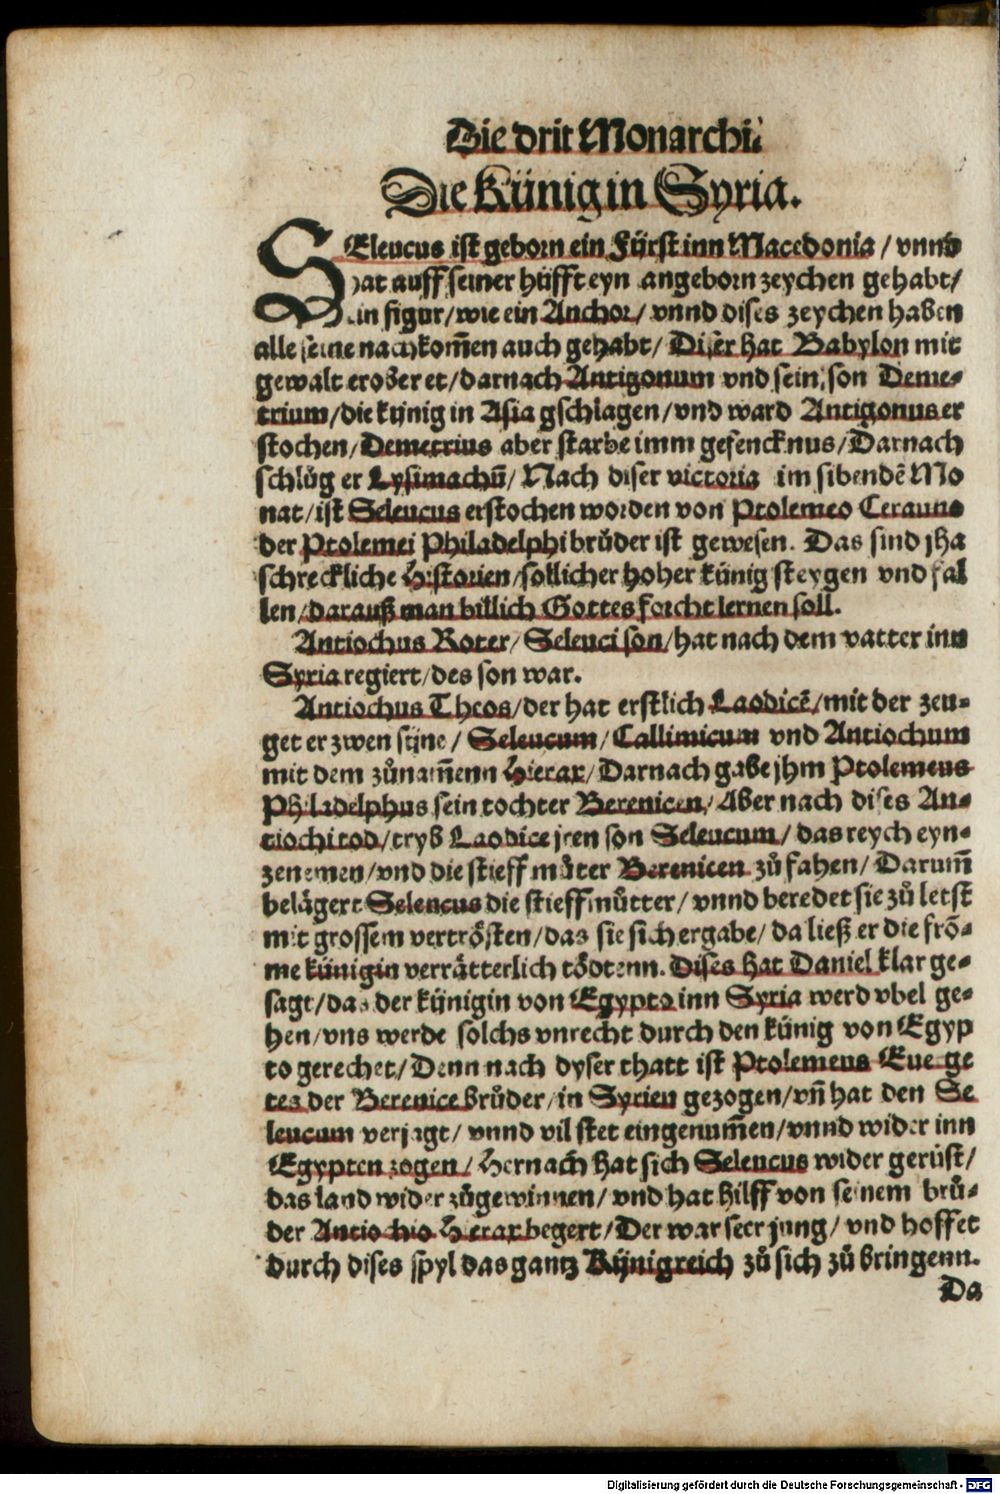 Die drit Monarchi
Die Künig in Syria.
SEleucus ist geborn ein Fürst inn Macedonia / vnnd
hat auff seiner hüfft eyn angeborn zeychen gehabt/
ein figur/wie ein Anchor/ vnnd dises zeychen haben
alle seine nachkom̄en auch gehabt/ Diser hat Babylon mit
gewalt eroberet/darnach Antigonum vnd sein son Deme⸗
trium/die künig in Asia gschlagen/vnd ward Antigonus er
stochen/Demetrius aber starbe imm gefencknus/Darnach
schlůg er Lysimachū/ Nach diser victoria im sibendē Mo
nat/ist Seleucus erstochen worden von Ptolemeo Cerauno
der Ptolemei Philadelphi brůder ist gewesen. Das sind jha
schreckliche Historien/sollicher hoher künig steygen vnd fal
len/darauß man billich Gottes forcht lernen soll.
Antiochus Soter/Seleuci son/hat nach dem vatter inn
Syria regiert/des son war.
Antiochus Theos/der hat erstlich Laodicē/mit der zeu⸗
get er zwen süne/ Seleucum/Callimicum vnd Antiochum
mit dem zůnam̄enn Hierax/Darnach gabe jhm Ptolemeus
Philadelphus sein tochter Berenicen/Aber nach dises An⸗
tiochi tod/tryb Laodice jren son Seleucum/ das reych eyn⸗
zenemen/vnd die stieff můter Berenicen zů fahen/Darum̄
belägert Seleucus die stieffmůtter/ vnnd beredet sie zů letst
mit grossem vertrösten/das sie sich ergabe/da ließ er die frō⸗
me künigin verrätterlich tödtenn. Dises hat Daniel klar ge⸗
sagt/das der künigin von Egypto inn Syria werd vbel ge⸗
hen/vns werde solchs vnrecht durch den künig von Egyp
to gerechet/Denn nach dyser thatt ist Ptolemeus Euerge
tes der Berenice brůder/in Syrien gezogen/vn̄ hat den Se
leucum verjagt/ vnnd vil stet eingenum̄en/vnnd wider inn
Egypten zogen/ Hernach hat sich Seleucus wider gerüst/
das land wider zůgewinnen/ vnd hat hilff von seinem brů⸗
der Antiochio Hierax begert/Der war seer jung/ vnd hoffet
durch dises spyl das gantz Künigreich zů sich zů bringenn.
Da
Digitalisierung gefördert durch die Deutsche Forschungsgemeinschaft - DFG